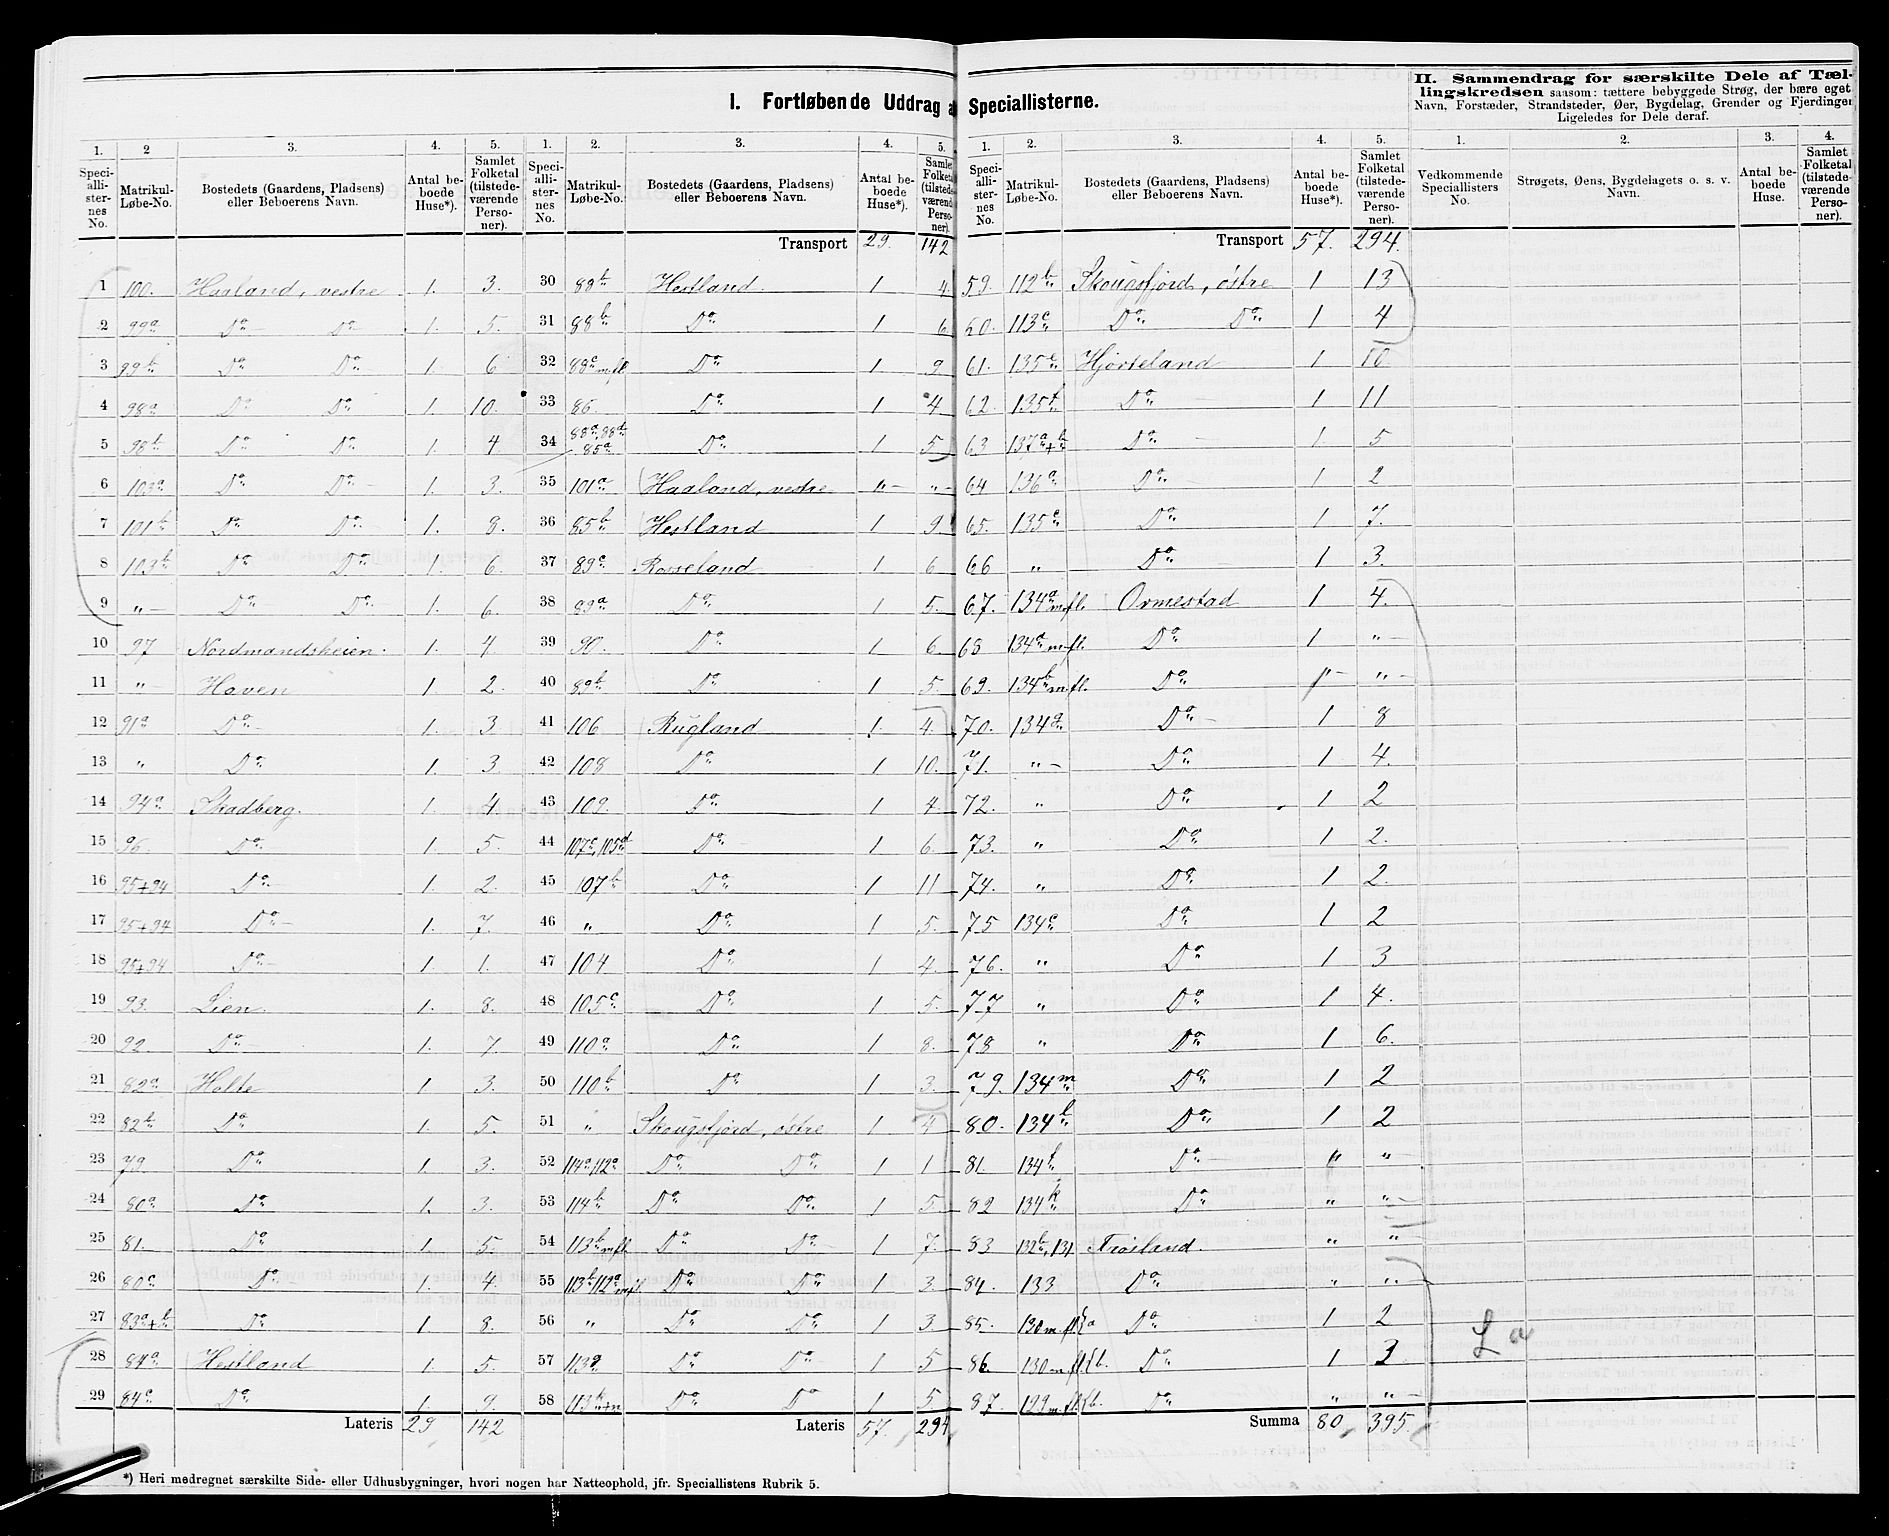 I. Fortløbende Uddrag a Speciallisterne.
II. Sammendrag for særskilte Dele af Tæl-
lingskredsen saasom: tættere bebyggede Strøg, der bære eget
Navn, Forstæder, Strandsteder, Øer, Bygdelag, Grender og Fjerdinger
Ligeledes for Dele deraf.
1. 2 3. 4. 5. 1. 2. 3. 4. 5. 1. 2. 3. 4. 5. 1. 2. 3. 4.
Speci-allli-ster-nes No. Matrikul-Løbe-No. Bostedets (Gaardens, Pladsens) eller Beboerens Navn. Antal be-boede Huse*). Samlet Folketal (tilstede-værende Perso-ner).
Speci-alli-ster-nes No. Matrikul-Løbe-No. Bostedets (Gaardens, Pladsens) eller Beboerens Navn. Antal be-boede Huse*). Samlet Folketal (tilstede-værend Perso-ner).
Speci-alli-ster-nes No. Matrikul-Løbe-No. Bostedets (Gaardens, Pladsens) eller Beboerens Navn. Antal be-boede Huse*). Samlet Folketal (tilstede-værende Perso-ner).
Vedkommende Speciallisters No. Strøgets, Øens, Bygdelagets o. s. v. Navn. Antal be-boede Huse. Samlet Folketal (tilstede-værende Perso-ner).
1 100. Haaland, vestre 1. 3.
2 99a Do Do 1. 5.
3 99b Do Do 1. 6
4 98a Do Do 1. 10.
5 98b Do Do 1. 4
6 103a Do Do 1. 3.
7 101b Do Do 1. 8.
8 103b Do Do 1. 6.
9 " Do Do 1. 6.
10 97 Nordmandsheien. 1. 4
11 " Haven 1. 2.
12 91a Do 1. 3
13 " Do 1. 3
14 94a Skadberg. 1. 4
15 96 Do 1. 5.
16 95+94 Do 1. 2.
17 95+94 Do 1. 7.
18 95+94 Do 1. 1.
19 93. Lien. 1. 8.
20 92. Do 1. 7.
21 82a Holte 1. 3.
22 82b Do 1. 5.
23 79. Do 1. 3.
24 80a Do 1. 3.
25 81. Do 1. 5.
26 80c Do 1. 4.
27 83a+b Do 1. 8.
28 84a Hestland 1. 5.
29 84c Do 1. 9.
Lateris 29 142
Transport 29. 142
30 88b Hestland. 1 4
31 88b Do 1 6
32 88c m.fl. Do 1. 9
33 86 Do 1 4
34 88a, 88d 85a Do 1 5
35 101a Haaland, vestre " "
36 85b Hestland 1 9
37 89c Rosseland 1 6
38 89a Do 1 5.
39 90. Do 1 6
40 89b Do 1 5.
41 106 Rugland 1. 4.
42 108 Do 1 10.
43 109. Do 1 4.
44 107c, 105d Do 1 6
45 107b Do 1 11
46 " Do 1 5.
47 104 Do 1 4.
48 105c Do 1 5.
49 110a Do 1 8.
50 110b Do 1 3.
51 " Skougsfjord, østre 1 4
52 114a 112a Do Do 1 1
53 114b Do Do 1 5.
54 113b m.fl. Do Do 1 7.
55 113b 112a m.fl. Do Do 1 3.
56 " Do Do 1 3
57 113g Do Do 1 5
58 113 Do Do 1 5
Lateris 57. 294
Transport 57. 294.
59. 112b Skougsfjord, østre 1 13
60. 113c Do Do 1 4
61. 135c Hjorteland 1 10
62. 135f Do 1 11
63 137a+b Do 1 5
64 136a Do 1 2
65. 135e Do 1 7.
66 " Do 1 3.
67. 134a m.fl. Ormestad 1 4.
68 134a m.fl. Do 1 "
69. 134b m.fl. Do " "
70. 134g Do 1 8
71. " Do 1 4.
72. " Do 1 2
73. " Do 1 2.
74. " Do 1 2.
75 134c Do 1 2
76. " Do 1 3
77 " Do 1 4.
78 " Do 1 6.
79. 134m Do 1 2
80. 134l Do 1 2
81. 134f Do " "
82 134k Do " "
83 132b, 131 Trøsland. " "
84. 133 Do " "
85. 130 m.fl. a Do 1 2
86. 130 m.fl. b. Do 1 3
87. 129 m.fl. b. Do " "
Summa 80. 395.
La
*) Heri medregnet særskilte Side- eller Udhusbygninger, hvori nogen har Natteophold, jfr. Speciallistens Rubrik 5.